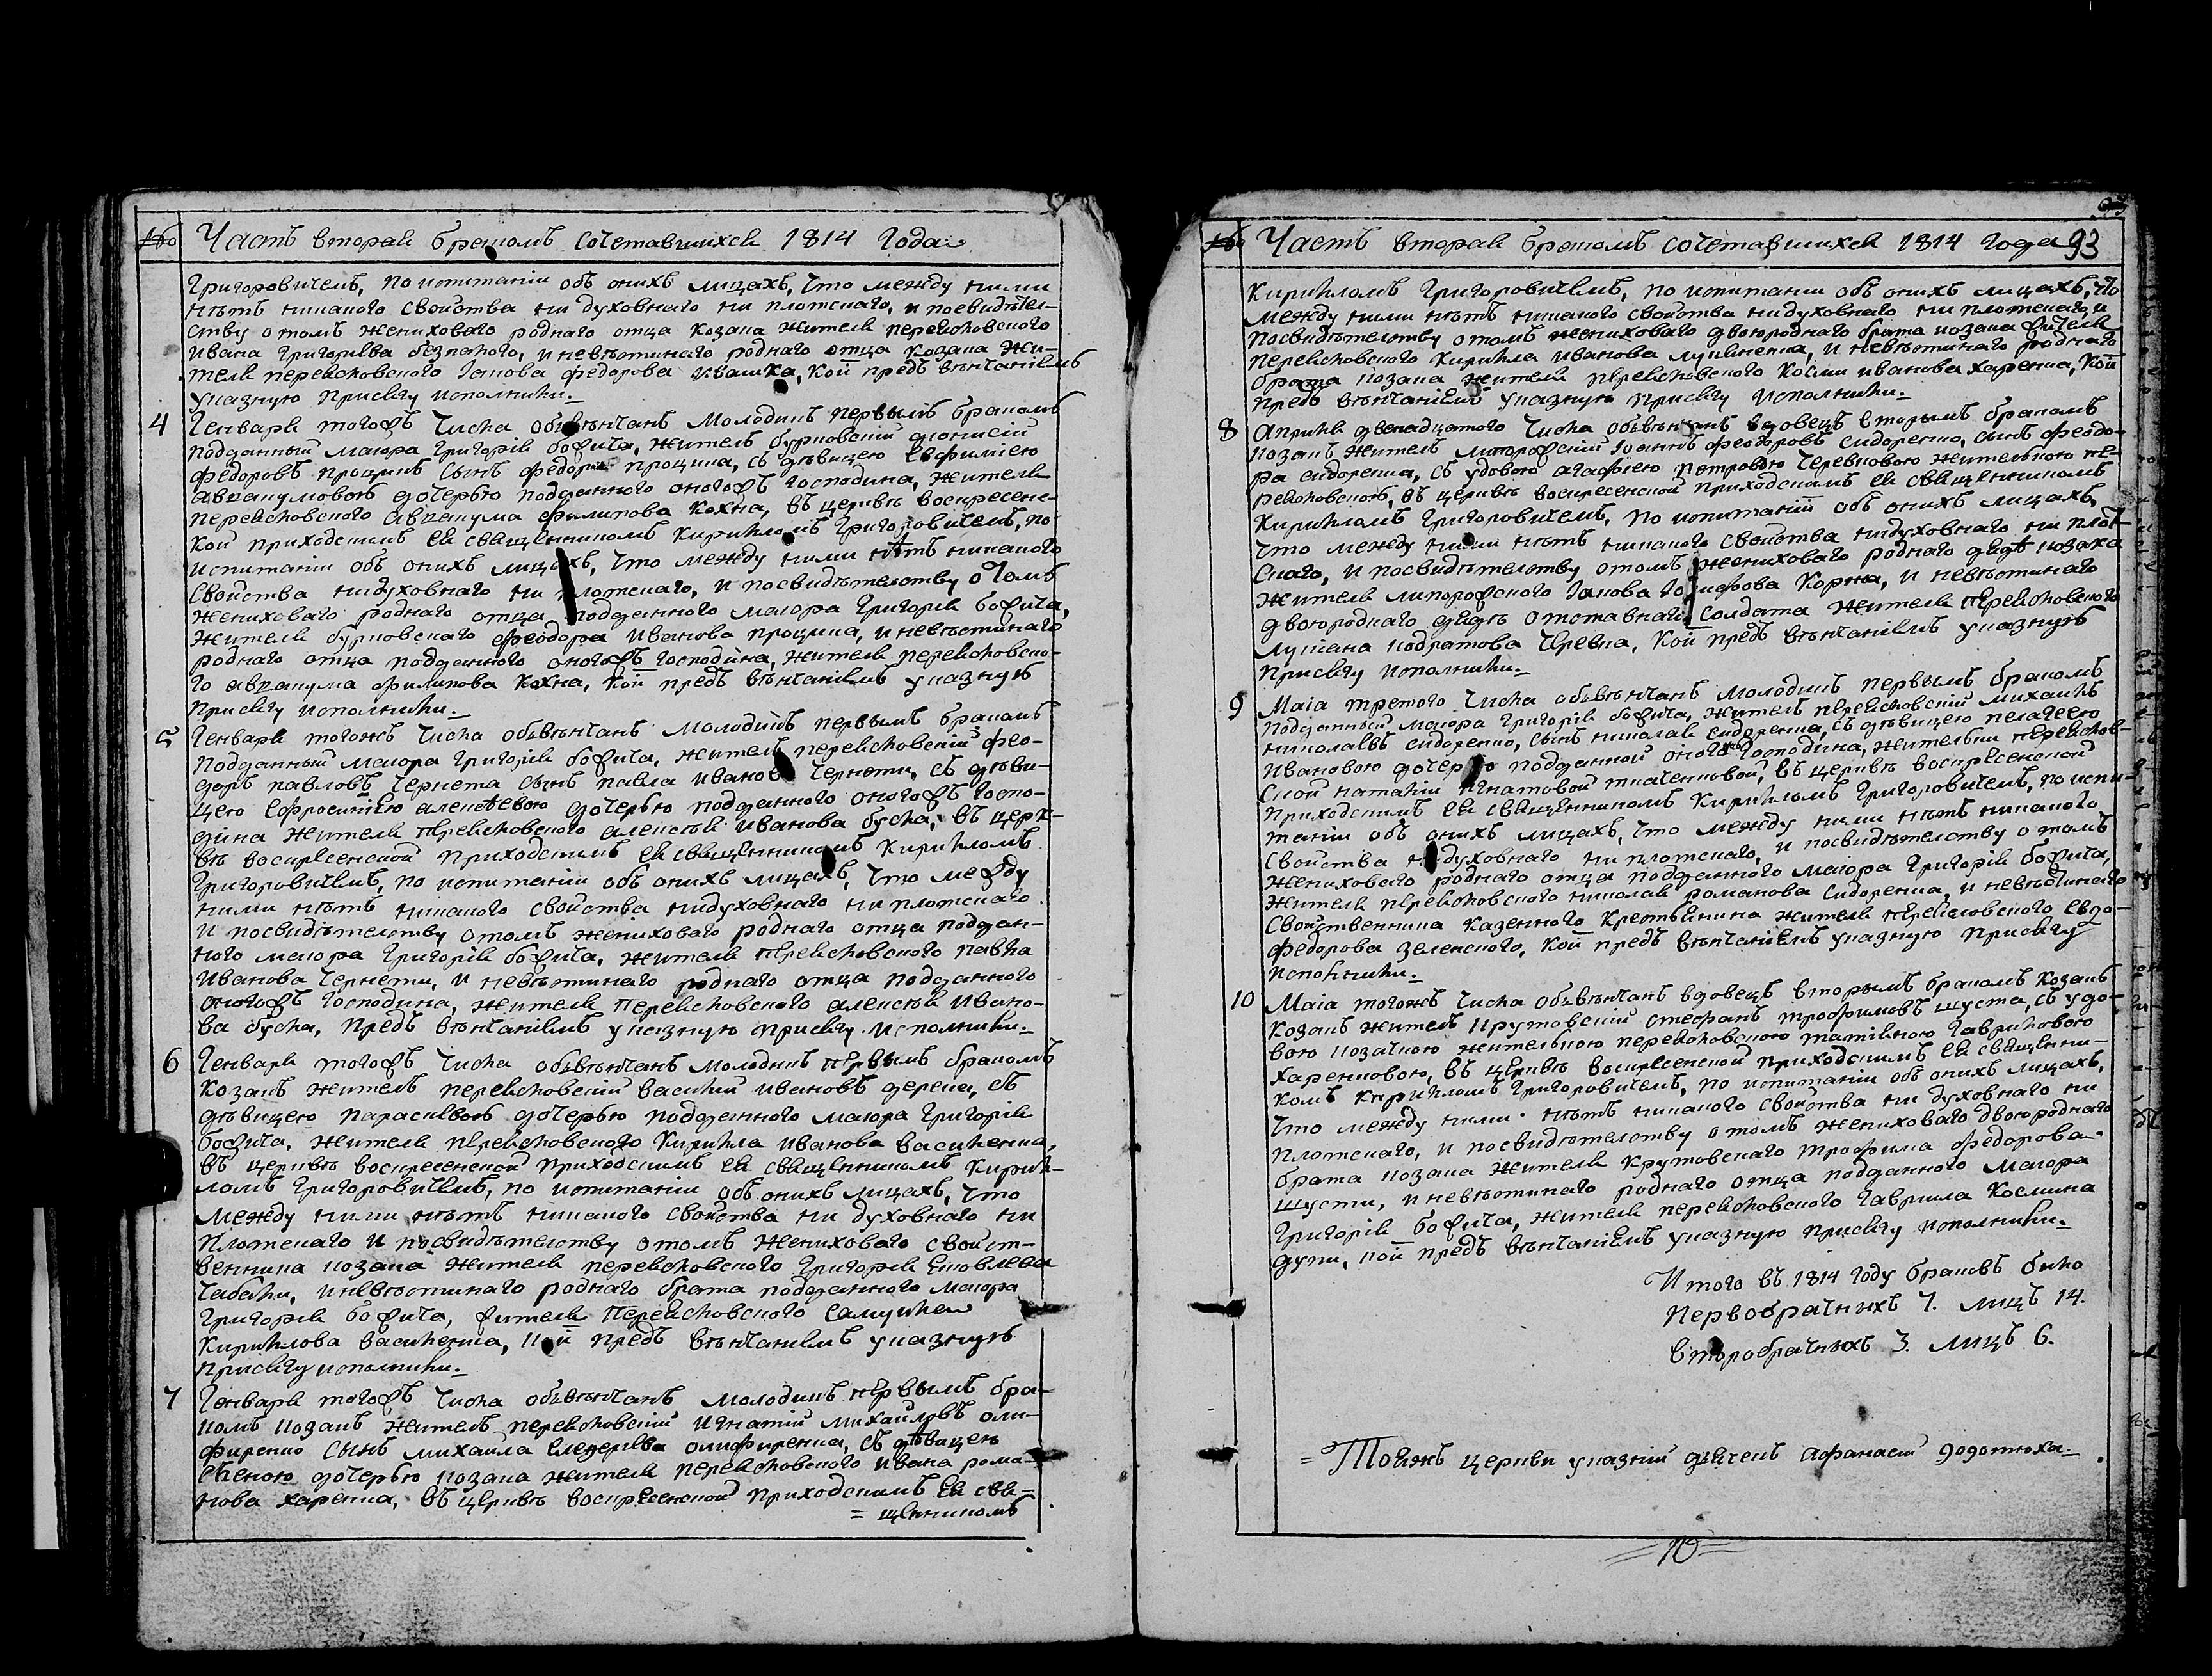 № Часть вторая бракомъ сочетавшихся 1814 года
Григоровичемъ, по испитаніи объ онихъ лицахъ, что между ними
нѣтъ никакого свойства ни духовнаго ни плотскаго, и посвидѣтел-
ству о томъ жениховаго роднаго отца козака жителя переясловского
Ивана Григориева безпалого, и невѣстинаго роднаго отца козака жи-
теля переясловского Іакова федорова Квашка, кои предъ вѣнчаніемъ
указную присягу исполнили.
4 Генваря тогожъ числа обвѣнчанъ молодикъ первымъ бракомъ
подданный маиора Григорія божича, житель бурковскій дионисій
федоровъ процикъ сынъ федора процика, съ дѣвицею Евфимією
авкакумовою дочерью подданного оногожъ господина, жителя
переясловского авкакума филипова Кохна, въ церквѣ воскресенс-
кой приходскимъ ея священникомъ Кириломъ Григоровичемъ, по
испитаніи объ онихъ лицахъ, что между ними нѣтъ никакого
свойства нидуховнаго ни плотского, и посвидѣтелству о томъ
жениховаго роднаго отца подданного маиора Григорія божича,
жителя бурковского феодора Иванова процика, и невѣстинаго
роднаго отца подданного оногожъ господина, жителя переясловско-
го авкакума филипова Кохна, кои предъ вѣнчаніемъ указную
присягу исполнили.
5 Генваря тогожъ числа обвѣнчанъ молодикъ первымъ бракомъ
подданный маиора Григорія божича, житель переясловскій фео-
доръ павловъ чернета сынъ павла Иванова чернети, съ дѣви-
цею Ефросинією алексѣевою дочерью подданного оногожъ госпо-
дина жителя переясловского алексѣя Иванова буска, въ церк-
вѣ воскресенской приходскимъ ея священникомъ Кириломъ
Григоровичемъ, по испитаніи объ онихъ лицахъ, что между
ними нѣтъ никакого свойства нидуховнаго ни плотскаго
и посвидѣтелству о томъ жениховаго роднаго отца поддан-
ного маиора Григорія божича, жителя переясловского павла
Иванова чернети, и невѣстинаго роднаго отца подданного
оногожъ господина, жителя переясловского алексѣя Ивано-
ва буска, предъ вѣнчаніемъ указную присягу исполнили.
6 Генваря тогожъ числа обвѣнчанъ молодикъ первымъ бракомъ
козакъ житель переясловскій василий ивановъ дерека, съ
дѣвицею параскевою дочерью подданного маиора Григорія
божича, жителя переясловского Кирила Иванова василенка,
въ церквѣ воскресенской приходскимъ ея священникомъ Кири-
ломъ Григоровичемъ, по испитаніи объ онихъ лицахъ, что
между ними нѣтъ никакого свойства ни духовнаго ни
плотскаго и посвидѣтелству о томъ жениховаго свойст-
венника козака жителя переясловского Григорія Яковлева
чабали, и невѣстинаго роднаго брата подданного маиора
Григорія божича, жителя переясловского Самуила
Кирилова василенка, кои предъ вѣнчаніемъ указную
присягу исполнили.
7 Генваря тогожъ числа обвѣнчанъ молодикъ первымъ бра-
комъ козакъ житель переясловскій Игнатій Михайловъ оли-
фиренко сынъ михаила Елезарева олифиренка, съ дѣвицею
Еленою дочерью козака жителя переясловского Ивана рома-
нова харенка, въ церквѣ воскресенской приходскимъ ея свя-
= щенникомъ
№ Часть вторая бракомъ сочетавшихся 1814 года 93
Кириломъ Григоровичемъ, по испитаніи объ онихъ лицахъ, что
между ними нѣтъ никакого свойства нидуховнаго ни плотскаго, и
посвидѣтелству о томъ жениховаго двоюроднаго брата козака жителя
переясловского Кирила Иванова луценка, и невѣстинаго роднаго
брата козака жителя переясловского Косми иванова харенка, кои
предъ вѣнчаніемъ указную присягу исполнили.
8 Априля двенадцатого числа обвѣнчанъ вдовецъ вторымъ бракомъ
козакъ житель липорожскій Іоаннъ феодоровъ сидоренко, сынъ феодо-
ра сидоренка, съ удовою агафією петровою черевковою жителкою пе-
реясловскою, въ церквѣ воскресенской приходскимъ ея священникомъ
Кириломъ Григоровичемъ, по испитаніи объ онихъ лицахъ,
что между ними нѣтъ никакого свойства нидуховнаго ни плот-
скаго, и посвидѣтелству о томъ жениховаго роднаго дядѣ козака
жителя липорожского Іакова Іосифова Коржа, и невѣстинаго
двоюроднаго дядѣ отставнаго солдата жителя переясловского
Лукіана кодратова черевка, кои предъ вѣнчаніемъ указную
присягу исполнили.
9 Маіа третого числа обвѣнчанъ молодикъ первымъ бракомъ
подданный маиора Григорія божича, житель переясловскій михаилъ
николаевъ сидоренко, сынъ николая сидоренка, съ дѣвицею пелагеею
Ивановою дочерью подданной оногожъ господина, жителки переяслов-
ской наталіи Игнатовой ткаченковой, въ церквѣ воскресенской
приходскимъ ея священникомъ Кириломъ Григоровичемъ, по испи-
таніи объ онихъ лицахъ, что между ними нѣтъ никакого
свойства нидуховнаго ни плотскаго, и посвидѣтелству о томъ
жениховаго роднаго отца подданного маиора Григорія божича,
жителя переясловского николая романова сидоренка, и невѣстинаго
свойственника казенного крестянина жителя переясловского Евдо-
федорова зеленского, кои предъ вѣнчаніемъ указную присягу
исполнили.
10 Маіа тогожъ числа обвѣнчанъ вдовецъ вторымъ бракомъ козакъ
козакъ житель крутовскій стефанъ трофимовъ шуста, съ удо-
вою козачкою жителкою переясловскою татіяною Гавриловою
харенковою, въ церквѣ воскресенской приходскимъ ея священни-
комъ Кириломъ Григоровичемъ, по испитаніи объ онихъ лицахъ,
что между ними нѣтъ никакого свойства ни духовнаго ни
плотскаго, и посвидѣтелству о томъ жениховаго двоюроднаго
брата козака жителя крутовского трофима федорова
шусти, и невѣстинаго роднаго отца подданного маиора
Григорія божича, жителя переясловского Гавриила Космина
дупи, кои предъ вѣнчаніемъ указную присягу исполнили.
Итого въ 1814 году браковъ било
первобрачнихъ 7. лицъ 14.
второбрачнихъ 3. лицъ 6.
= Тоеяжъ церкви указній дячекъ Афанасій додотюха.
= 10 =